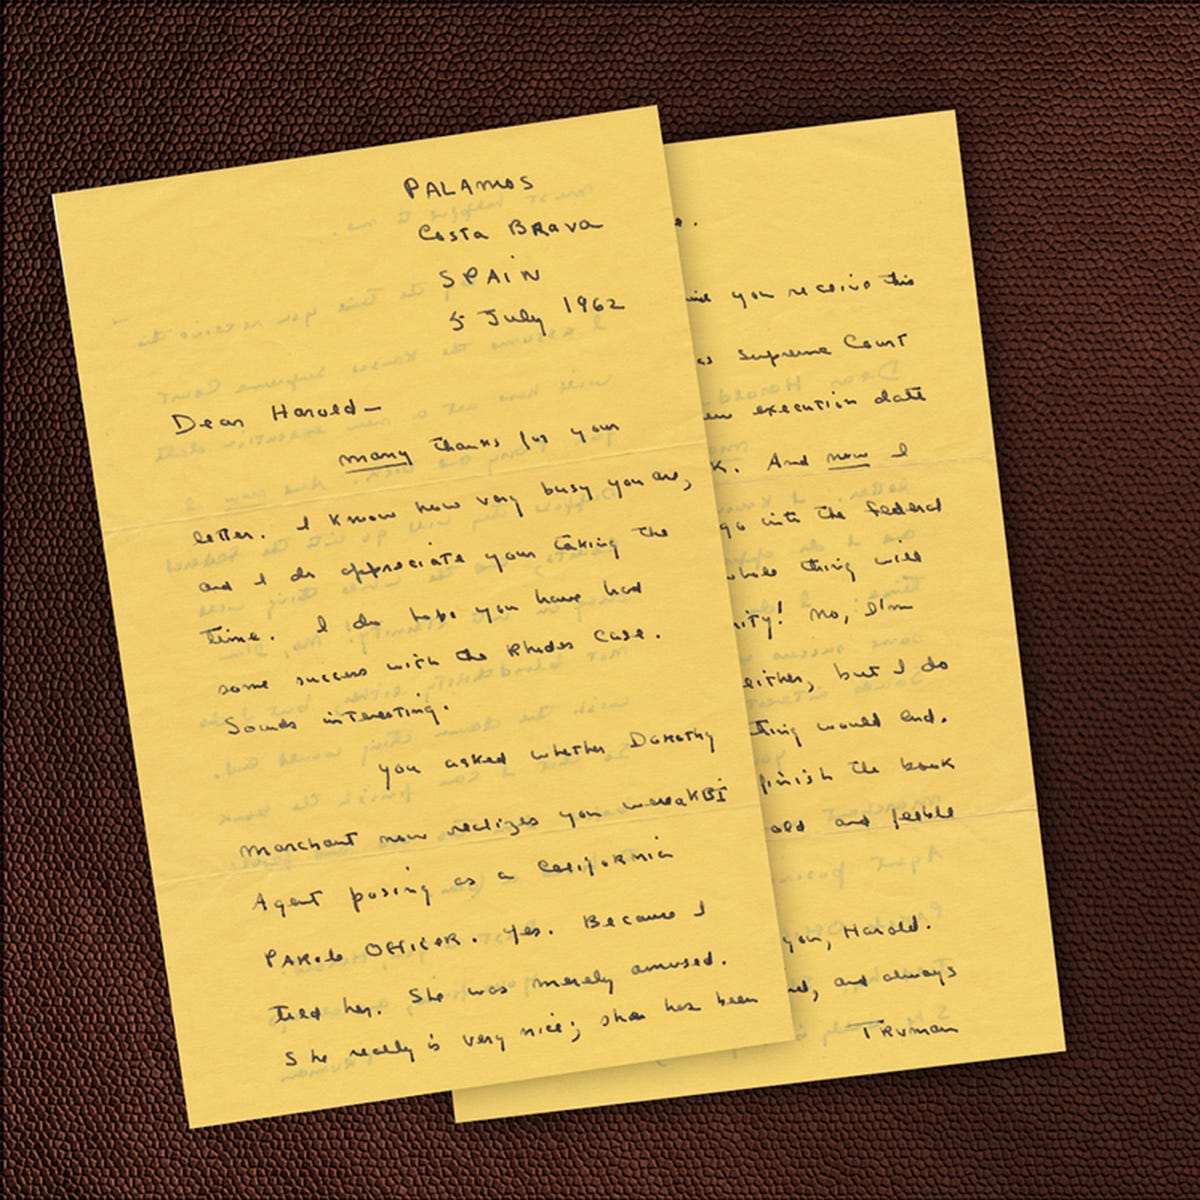 PALAMOS
Costa BRAVA
SPAIN
5 July 1962
Dear Harold—
many thanks for your
letter. I know how very busy you are,
and I do appreciate your taking the
time. I do hope you have had
some success with the Rhodes Case.
Sounds interesting.
you asked whether Dorothy
Marchant now realizes you were a KBI
Agent posing as a California
PAROLE OFFICER. Yes. Because I
told her. She was merely amused.
She really is very nice; she has been
you receive this
as Supreme Court
execution date
And now I
go into the federal
whole thing will
No, I'm
either, but I do
thing would end.
finish the book
old and feeble
you, Harold.
and always
TRUMAN